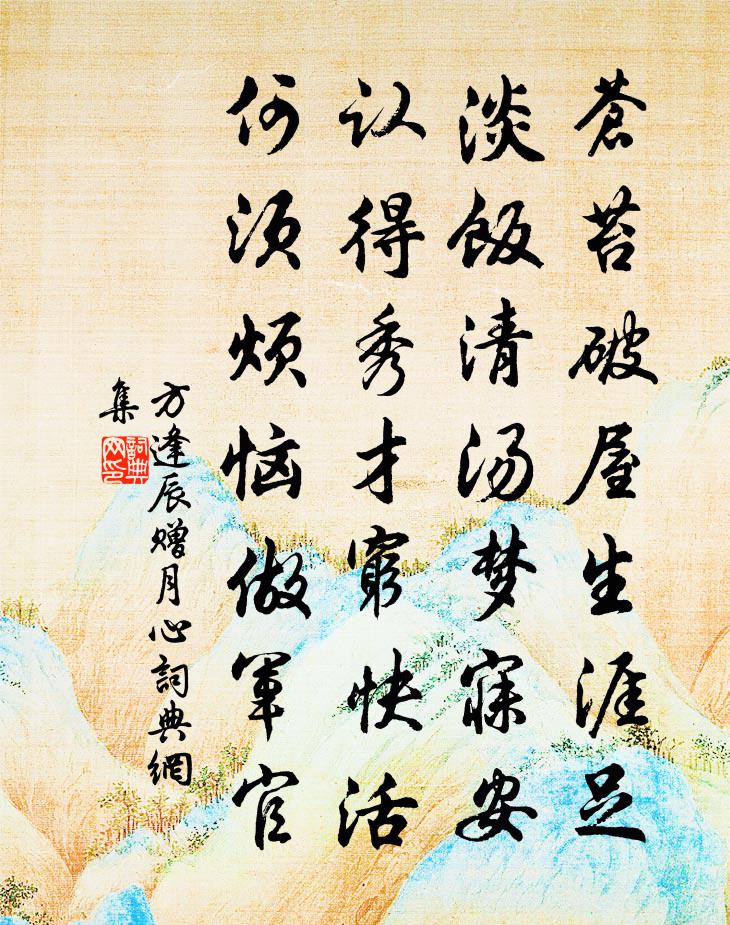 蒼苔破屋生涯足
淡飯清湯梦寐安
认得秀才窮快活
何须烦恼做軍官
方逢辰赠月心詞典網
集
詞典
网印